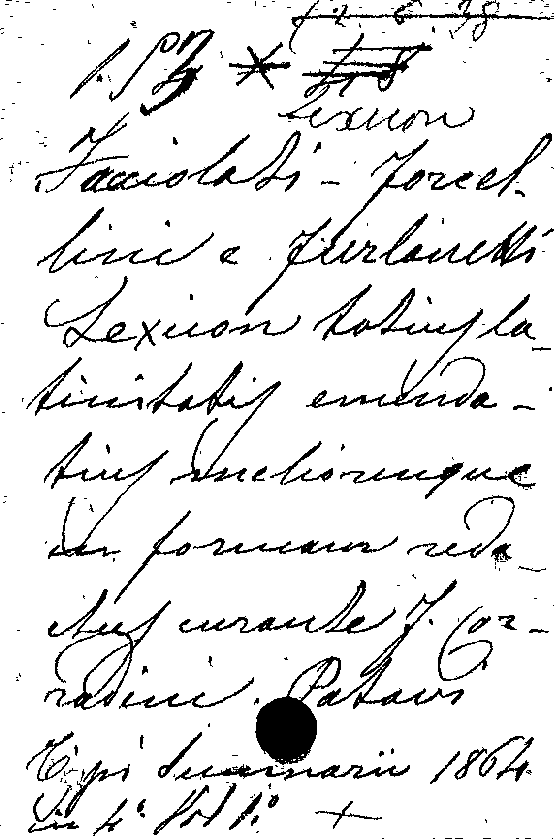 Lexicon
Facciolati - Forcel-
lini e Furlanetti
Lexicon totius la_
tinitatis emenda-
tius melioremque
in formam reda_
ctus curante F. Cor-
radini. Patavi
Tipi Seminarii 1864
in 4° Vol 1°